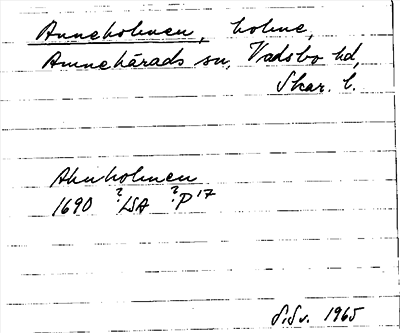 Anneholmen, holme,
Amnehärads sn, Vadsbo hd,
Skar. l.
Ahnholmen
1690 ? LSA ? P 17
S.S.v. 1965